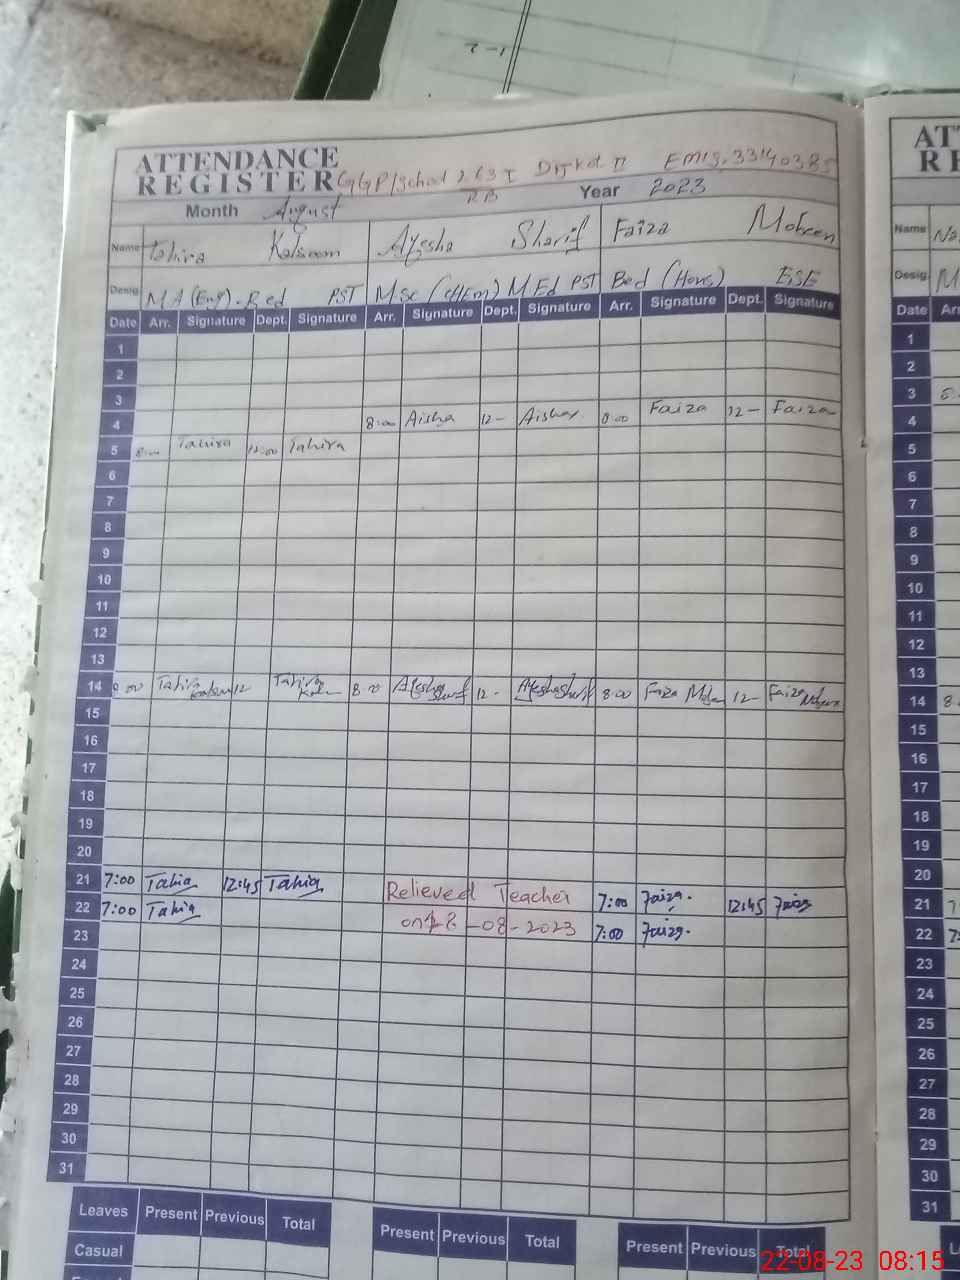 ATTENDANCE
REGISTER GGP/School 263 I Dijkot II EMIS. 33140385
RB
Month August Year 2023
Name Tahira Kalsoom Ayesha Sharif Faiza Mobeen
Desig. MA (Eng). Bed PST MSc (CHEM) M Ed PST Bed (Hons) ESE
Date Arr. Signature Dept. Signature Arr. Signature Dept. Signature Arr. Signature Dept. Signature
1
2
3
4 8:00 Aisha 12- Aisha 8:00 Faiza 12- Faiza
5 8:00 Tahira 12:00 Tahira
6
7
8
9
10
11
12
13
14 8:00 Tahira 12 Tahira 8:00 Ayesha Sharif 12- Ayesha Sharif 8:00 Faiza 12- Faiza
15
16
17
18
19
20
21 7:00 Tahira 12:45 Tahira Relieved Teacher 7:00 Faiza. 12:45 Faiza
22 7:00 Tahira on 18-08-2023 7:00 Faiza.
23
24
25
26
27
28
29
30
31
Leaves Present Previous Total Present Previous Total Present Previous Total
Casual
AT
RE
Name
Desig.
Date Arr
1
2
3
4
5
6
7
8
9
10
11
12
13
14 8
15
16
17
18
19
20
21
22
23
24
25
26
27
28
29
30
31
22-08-23 08:15